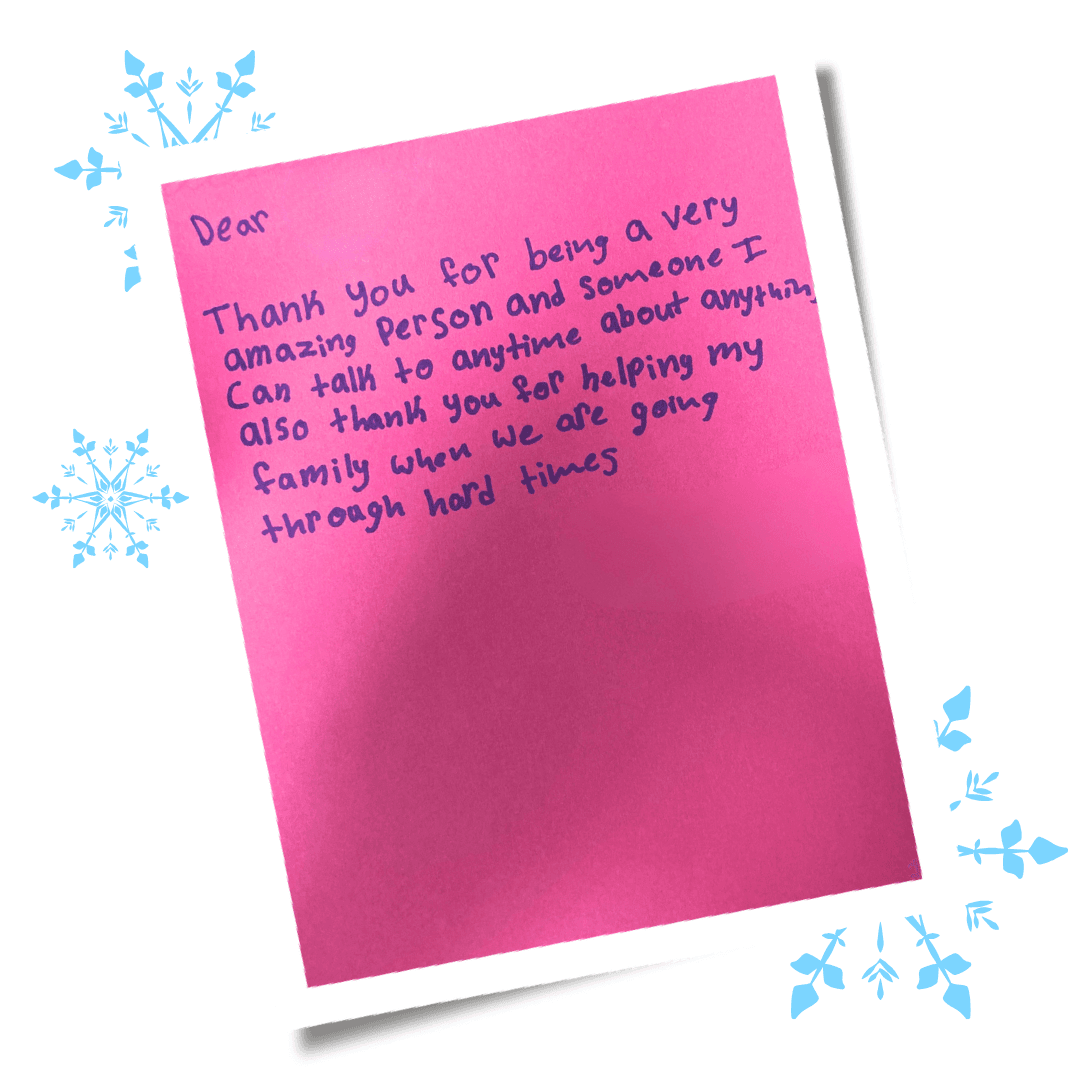 Dear
Thank you for being a very
amazing Person and someone I
Can talk to anytime about anything
also thank you for helping my
family when we are going
through hard times